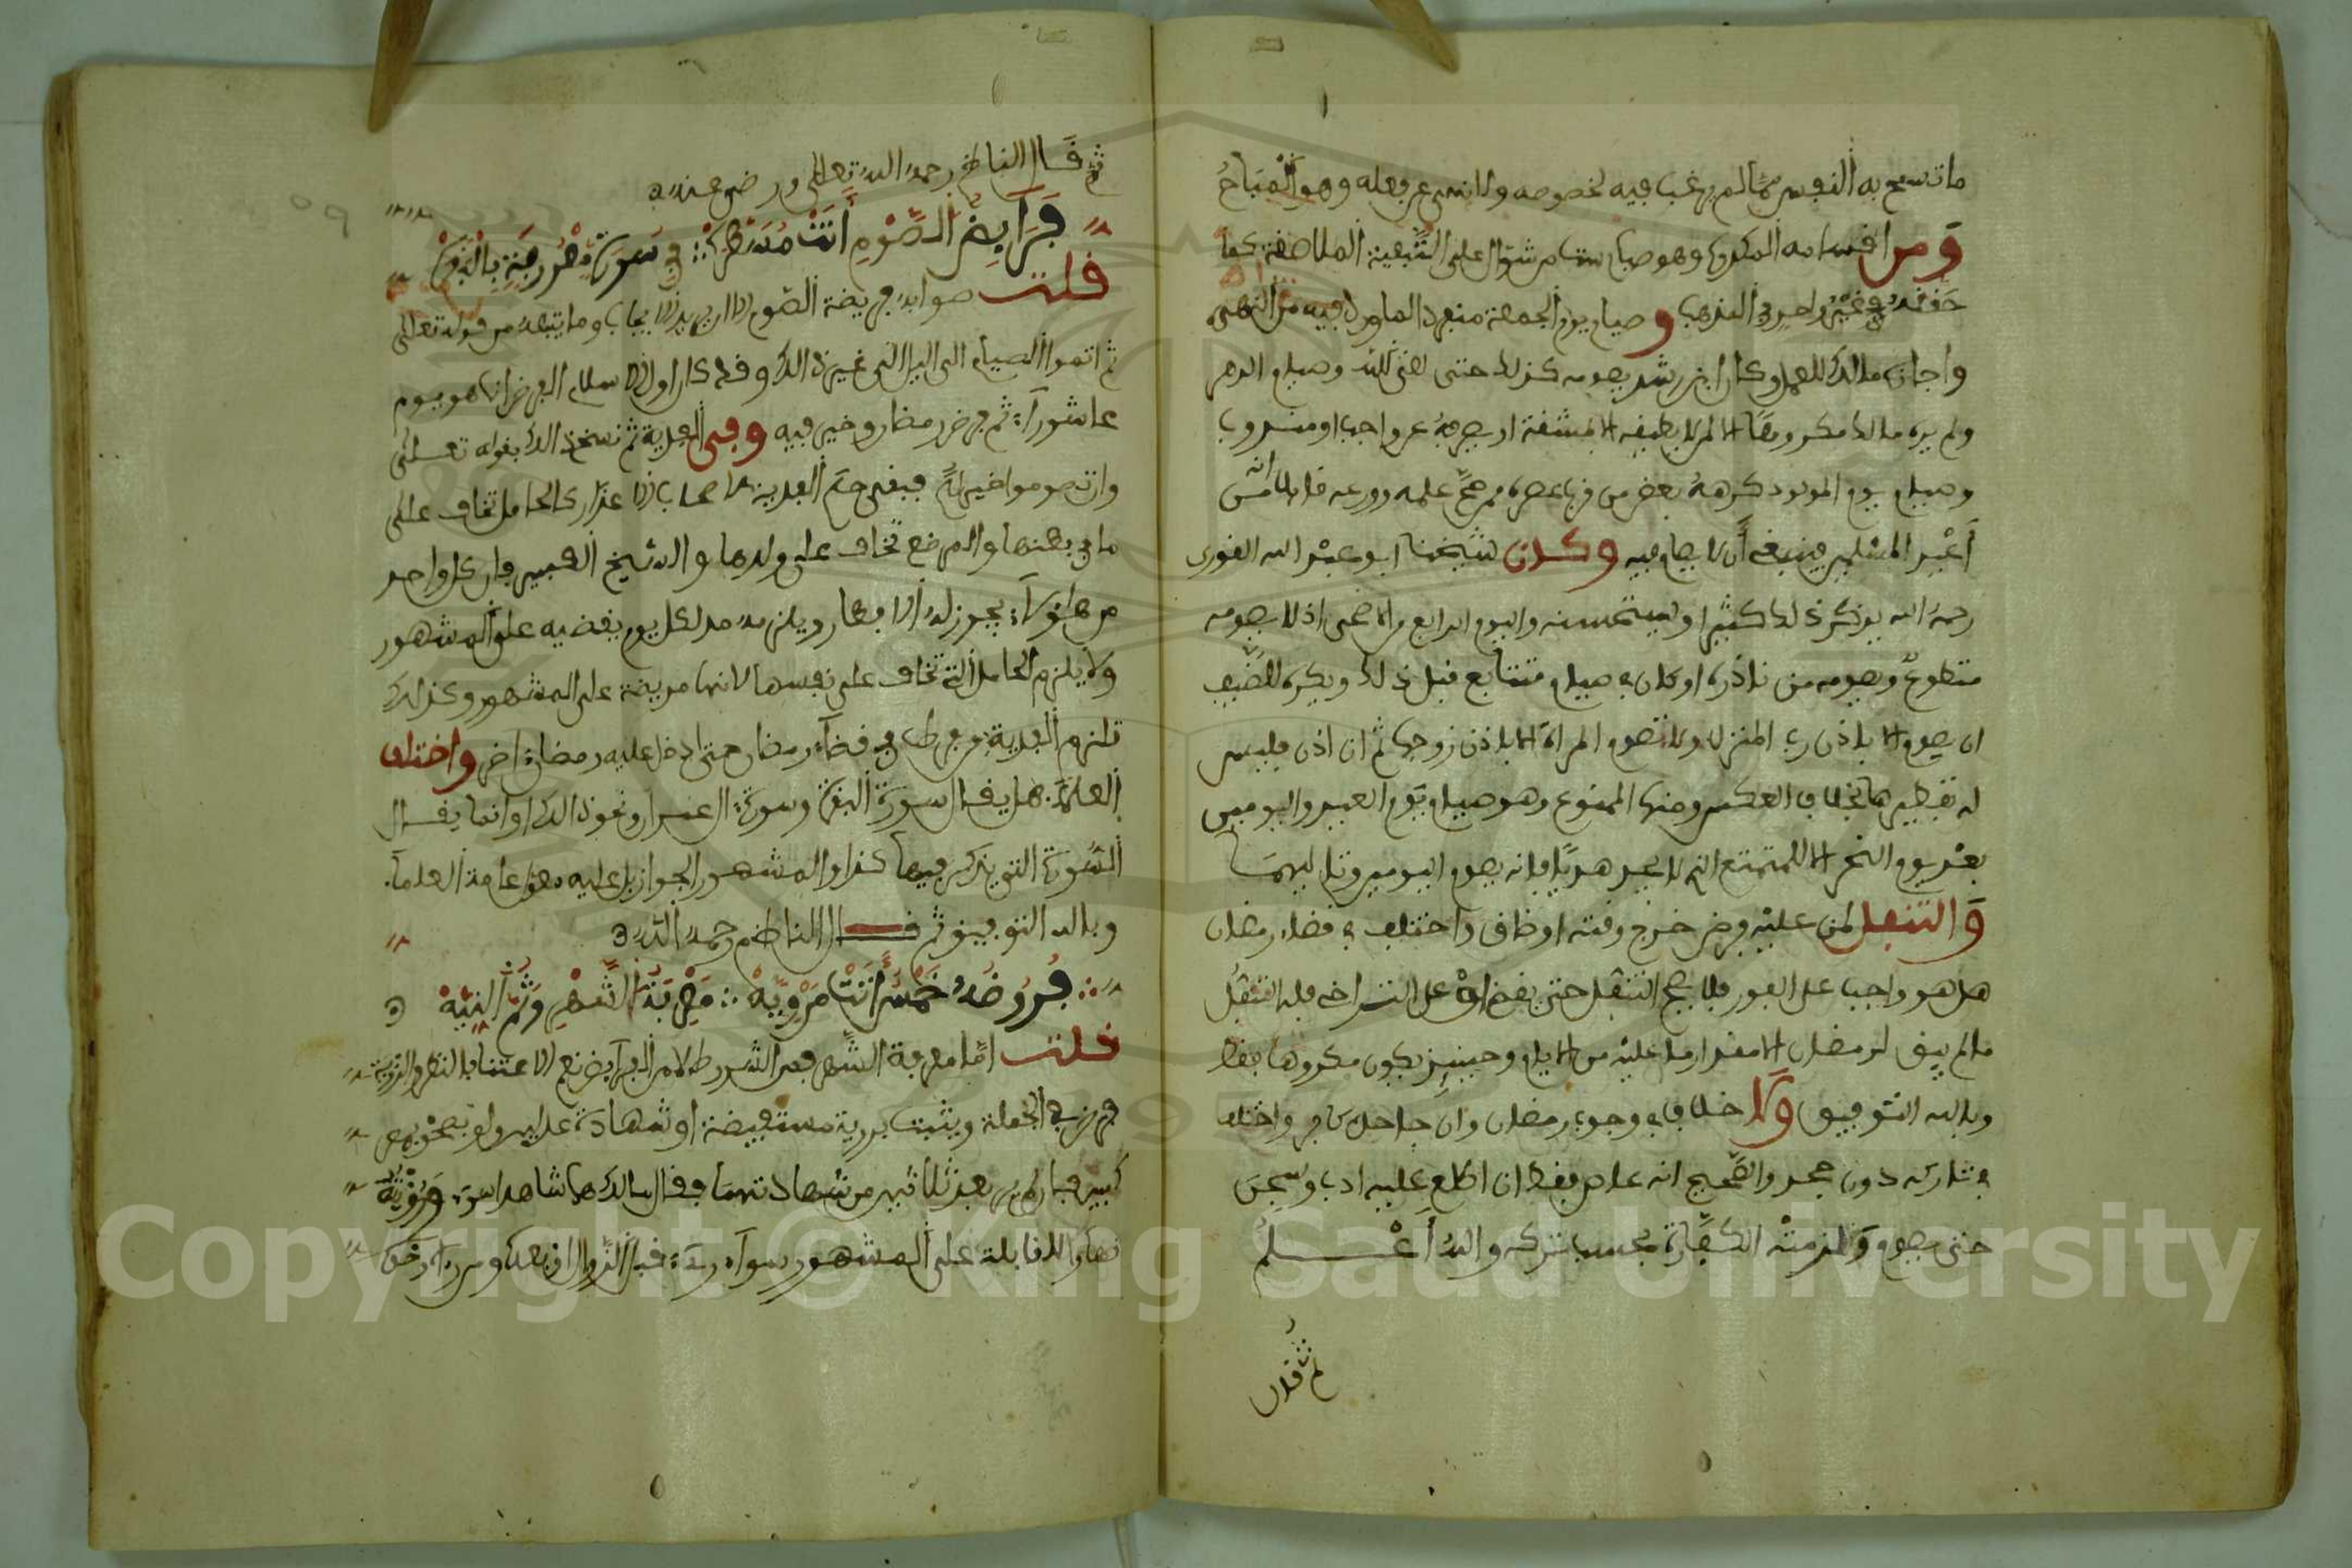 ما تسمح به النفوس مما لم يرغب فيه لخصوصه ولا نهى عن فعله وهو المباح
ومن اقسامه المكروه وهو صيام ست من شوال على التبعية الملاصقة كما
حققه غير واحد في المذهب وصيام يوم الجمعة منفردا لما ورد فيه من النهي
واجازه مالك للعمل وكان ابن رشد يصومه كذلك حتى لقي الله وصيام الدهر
ولم يره مالك مكروها الا لمن لا يطيقه الا بمشقة او يصرفه عن واجب او مندوب
وصيام يوم المولود كرهه بعض من قرب عصره ممن صح علمه وورعه قائلا انه من
أعياد المسلمين فينبغي أن لا يصام فيه وكان شيخنا ابو عبد الله القوري
رحمه الله يذكر ذلك كثيرا ويستحسنه واليوم الرابع من الاضحى اذ لا يصومه
متطوع ويصومه من نذره او كان في صيام متتابع قبل ذلك ويكره للضيف
ان يصوم الا باذن رب المنزل ولا تصوم المراة الا باذن زوجها ثم ان اذن فليس
له تفطيرها بخلاف العكس ومنها الممنوع وهو صيام يوم العيد واليومين
بعد يوم النحر الا للمتمتع الذي لا يجد هديا فانه يصوم اليومين وتاليهما
والتنفل لمن عليه فرض خرج وقته او ضاق واختلف في قضاء رمضان
هل هو واجب على الفور فلا يصح التنفل حتى يقضى او على التراخي فله التنفل
ما لم يبق لرمضان الا مقدار ما عليه من الايام وحينئذ يكون مكروها فقط
وبالله التوفيق ولا خلاف في وجوب رمضان وان جاحده كافر واختلف
في تاركه دون جحد والصحيح انه عاص فقط ان اطلع عليه ادب وسجن
حتى يصوم ولزمته الكفارة بحسب تركه والله أعلم
ثم قال
ثم قال الناظم رحمه الله تعالى ورضي عنه
فرايض الصوم أتت مسطره في سورة مشهورة بالبقره
قلت صوابه فريضة الصوم لا ان يريد الايجاب وما يتبعه من قوله تعالى
ثم اتموا الصيام الى اليل الى غير ذالك وقد كان اول الاسلام الفرض انما هو يوم
عاشوراء ثم فرض رمضان وخير فيه وفي الفدية ثم نسخ ذالك بقوله تعالى
وان تصوموا خير لكم فبقي حكم الفدية لاصحاب الاعذار كالحامل تخاف على
ما في بطنها والمرضع تخاف على ولدها والشيخ الكبير فان كل واحد
من هاؤلاء يجوز له الافطار ويلزمه مد لكل يوم يقضيه على المشهور
ولا يلزم الحامل التي تخاف على نفسها لانها مريضة على المشهور وكذلك
تلزم الفدية من فرط في قضاء رمضان حتى دخل عليه رمضان اخر واختلف
العلماء هل يقال سورة البقرة وسورة ال عمران ونحو ذالك او انما يقال
السورة التي يذكر فيها كذا والمشهور الجواز بل عليه عامة العلماء
وبالله التوفيق ثم قال الناظم رحمه الله
فروضه خمس أتت مروية معرفة الشهر وثم النية
قلت اما معرفة الشهر فمن الشروط لا من الفرايض نعم الاعتناء بالنظر والترقب
فرض في الجملة ويثبت برؤية مستفيضة او شهادة عدلين ولو بصحو بمصر
كبير فان لم ير بعد ثلاثين من شهادتهما فقال مالك هما شاهدا سوء ورؤيته
نهارا للقابلة على المشهور سواء رءي قبل الزوال او بعده ومن